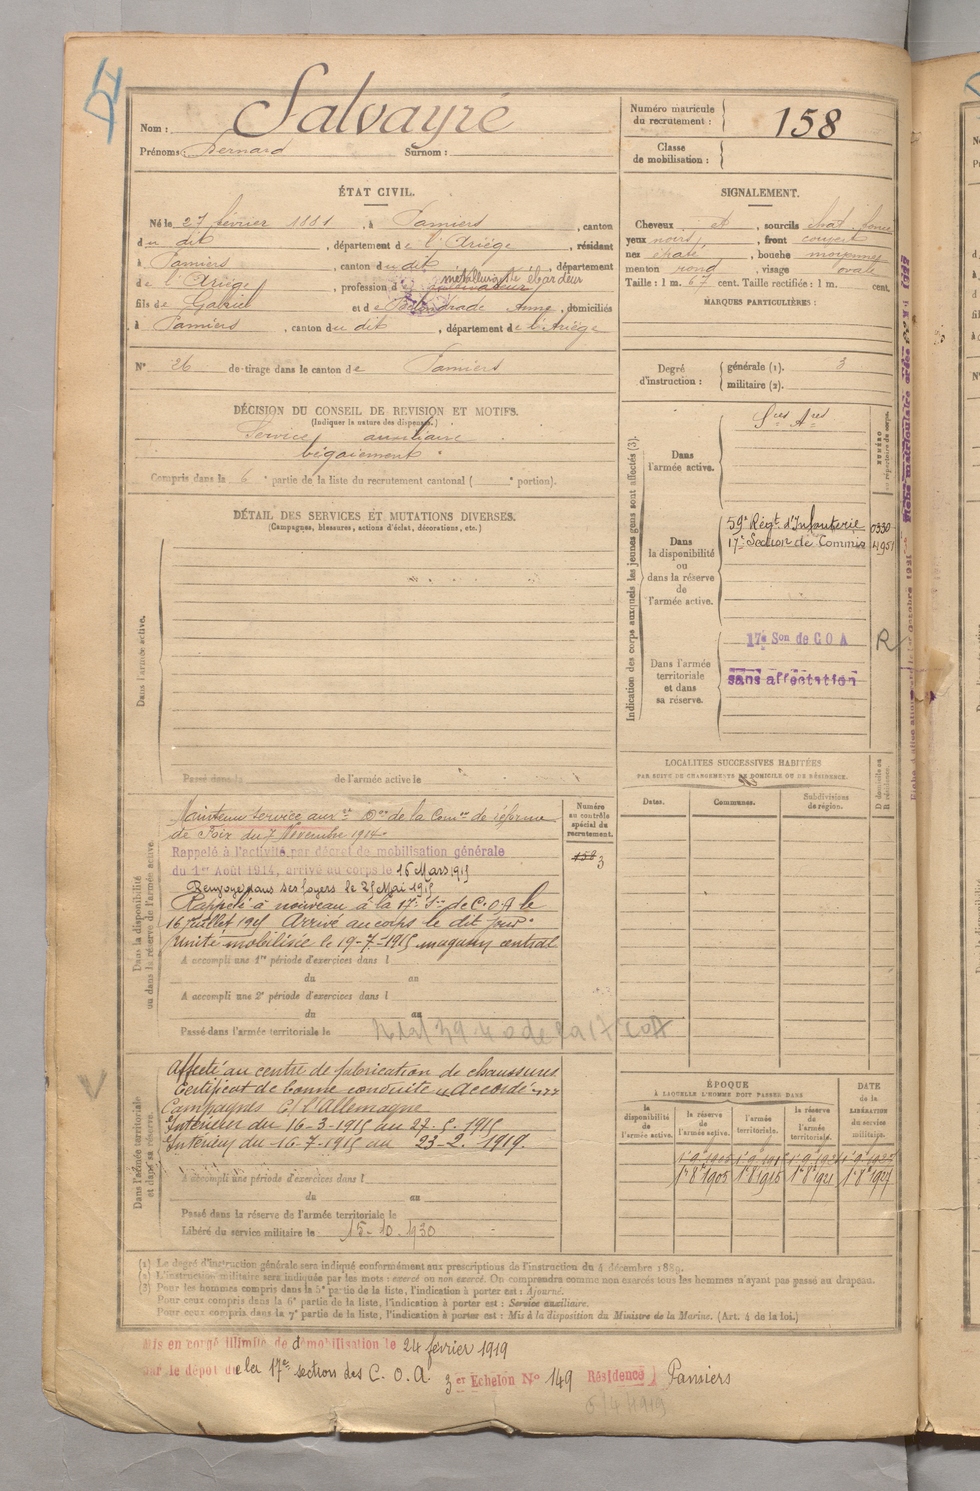 Nom : Salvayré
Prénoms : Bernard Surnom :
Numéro matricule du recrutement : 158
Classe de mobilisation :
ÉTAT CIVIL.
Né le 27 février 1881, à Pamiers, canton
du dit, département de l'Ariège, résidant
à Pamiers, canton du dit, département
de l'Ariège, profession d métallurgiste ébardeur
fils de Gabriel et de Anne, domiciliés
à Pamiers, canton du dit, département de l'Ariège
N° 26 de tirage dans le canton de Pamiers
DÉCISION DU CONSEIL DE REVISION ET MOTIFS.
(Indiquer la nature des dispenses.)
Service auxiliaire
bégaiement
Compris dans la 6e partie de la liste du recrutement cantonal ( e portion).
DÉTAIL DES SERVICES ET MUTATIONS DIVERSES.
(Campagnes, blessures, actions d'éclat, décorations, etc.)
Dans l'armée active.
Passé dans la de l'armée active le
Dans la disponibilité ou dans la réserve de l'armée active.
Maintenu service auxre Don de la Comon de réforme
de Foix du 7 Novembre 1914
Rappelé à l'activité par décret de mobilisation générale
du 1er Août 1914, arrivé au corps le 16 Mars 1915
Renvoyé dans ses foyers le 25 Mai 1915
Rappelé à nouveau à la 17e Son de C.O.A le
16 Juillet 1915 Arrivé au corps le dit jour
Unité mobilisée le 19-7-1915 magasin central
A accompli une 1re période d'exercices dans l
du au
A accompli une 2e période d'exercices dans l
du au
Passé dans l'armée territoriale le
Numéro au contrôle spécial du recrutement.
158 3
Dans l'armée territoriale et dans sa réserve.
Affecté au centre de fabrication de chaussures
Certificat de bonne conduite "Accordé"
Campagnes C/ l'Allemagne
Intérieur du 16-3-1915 au 27-5-1915
Intérieur du 16-7-1915 au 23-2-1919.
A accompli une période d'exercices dans l
du au
Passé dans la réserve de l'armée territoriale le
Libéré du service militaire le 15-10-1930
SIGNALEMENT.
Cheveux et sourcils chat. foncé
yeux noirs, front couvert
nez épaté, bouche moyenne
menton rond, visage ovale
Taille : 1 m. 67 cent. Taille rectifiée : 1 m. cent.
MARQUES PARTICULIÈRES :
Degré d'instruction : générale (1). 3
militaire (2).
Indication des corps auxquels les jeunes gens sont affectés (3).
Dans l'armée active.
Sces Ares
NUMÉRO au répertoire du corps.
Dans la disponibilité ou dans la réserve de l'armée active.
59e Régt d'Infanterie 0330
17e Section de Commis 4951
Dans l'armée territoriale et dans sa réserve.
17e Son de C O A R
sans affectation
LOCALITÉS SUCCESSIVES HABITÉES
PAR SUITE DE CHANGEMENTS DE DOMICILE OU DE RÉSIDENCE.
D domicile ou R résidence.
Dates. Communes. Subdivisions de région.
ÉPOQUE
À LAQUELLE L'HOMME DOIT PASSER DANS
la disponibilité de l'armée active.
la réserve de l'armée active.
l'armée territoriale.
la réserve de l'armée territoriale.
DATE de la LIBÉRATION du service militaire.
1er 8 1905 1er 8 1915 1er 8 1921 1er 8 1927
(1) Le degré d'instruction générale sera indiqué conformément aux prescriptions de l'instruction du 4 décembre 1889.
(2) L'instruction militaire sera indiquée par les mots : exercé ou non exercé. On comprendra comme non exercés tous les hommes n'ayant pas passé au drapeau.
(3) Pour les hommes compris dans la 5e partie de la liste, l'indication à porter est : Ajourné.
Pour ceux compris dans la 6e partie de la liste, l'indication à porter est : Service auxiliaire.
Pour ceux compris dans la 7e partie de la liste, l'indication à porter est : Mis à la disposition du Ministre de la Marine. (Art. 4 de la loi.)
Mis en congé illimité de démobilisation le 24 février 1919
par le dépôt de la 17e section des C. O. A. 3er Echelon N° 149 Résidence ) Pamiers